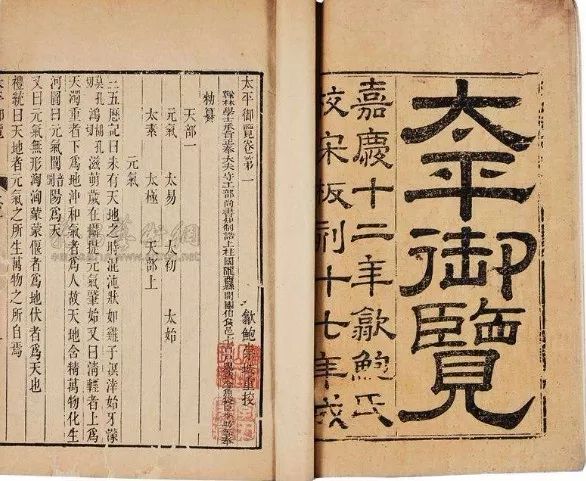 太平御覽
嘉慶十二年歙鮑氏
校宋板刻十七年成
太平御覽卷第一
翰林學士承旨正奉大夫守工部尚書知制誥上柱國隴西縣開國伯食邑
歙鮑崇城重校
勅纂
天部一
元氣 太易 太初 太始
太素 太極 天部上
元氣
三五歷記曰未有天地之時混沌狀如雞子溟涬始牙濛
鴻滋萌歲在攝提元氣肇始又曰清輕者上爲
天濁重者下爲地沖和氣者爲人故天地含精萬物化生
河圖曰元氣闓陽爲天
又曰元氣無形洶洶蒙蒙偃者爲地伏者爲天也
禮統曰天地者元氣之所生萬物之所自焉